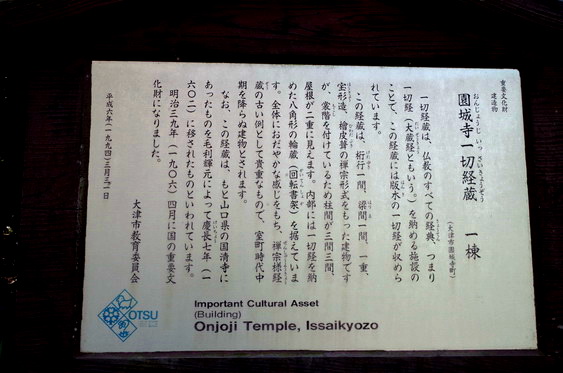 重要文化財
建造物
園城寺一切経蔵 一棟
おんじょうじ いっ さいきょうぞう
(大津市園城寺町)
一切経蔵は、仏教のすべての経典、つまり
一切経(大蔵経ともいう)を納める施設の
ことで、この経蔵には版木の一切経が収めら
れています。
この経蔵は、桁行一間、梁間一間、一重、
宝形造、檜皮葺の禅宗形式をもった建物です
が、裳階を付けているため柱間が三間三間、
屋根が二重に見えます。内部には一切経を納
めた八角形の輪蔵(回転書架)を据えていま
す。全体におだやかな感じをもち、禅宗様経
蔵の古い例として貴重なもので、室町時代中
期を降らぬ建物とされます。
なお、この経蔵は、もと山口県の国清寺に
あったものを毛利輝元によって慶長七年(一
六〇二)に移されたものといわれています。
明治三九年(一九〇六)四月に国の重要文
化財になりました。
大津市教育委員会
平成六年(一九九四)三月三一日
OTSU
Important Cultural Asset
(Building)
Onjoji Temple, Issaikyozo